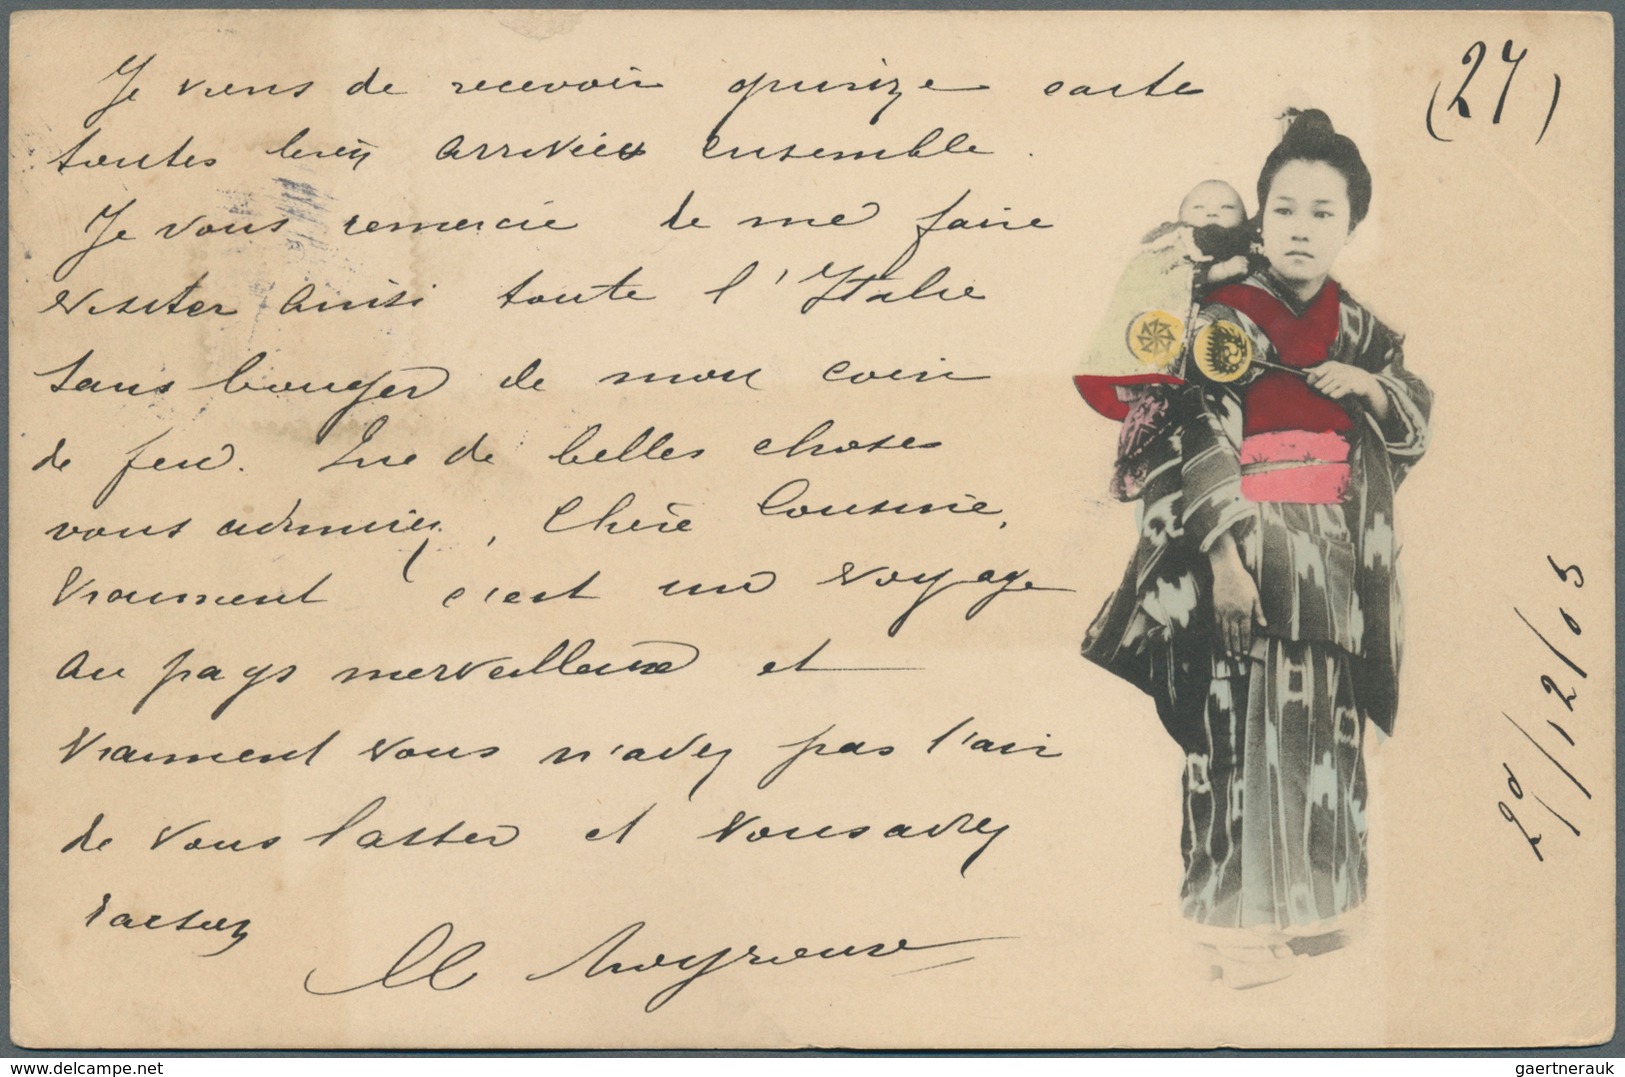 (27)
Je viens de recevoir quinze carte
toutes bien arrivées ensemble.
Je vous remercie de me faire
visiter ainsi toute l'Italie
sans bouger de mon coin
de feu. Que de belles choses
vous admirez, Chère Cousine,
Vraiment c'est un voyage
au pays merveilleux et
vraiment vous n'avez pas l'air
de vous lasser et vous avez
raison
29/12/05
gaertnerauk